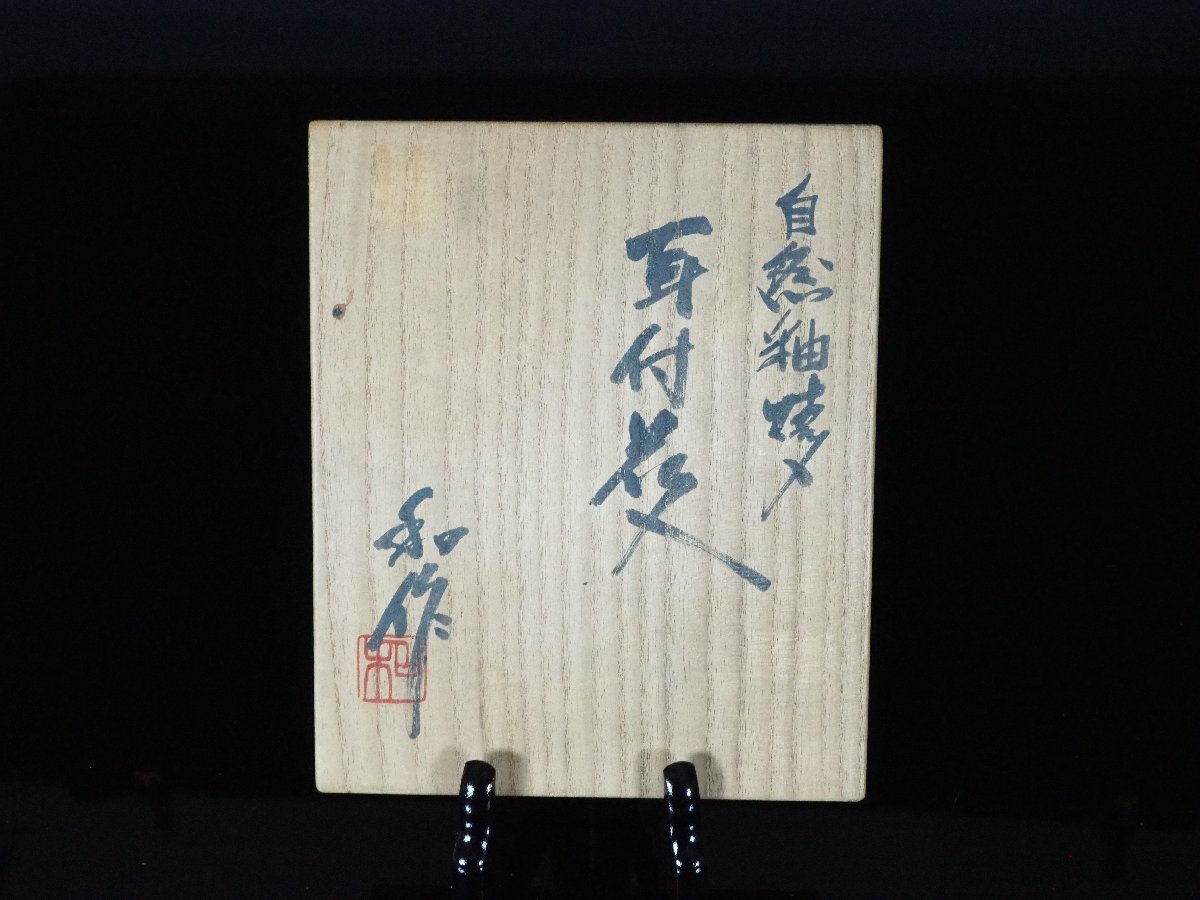 自然釉焼〆
耳付花入
和作